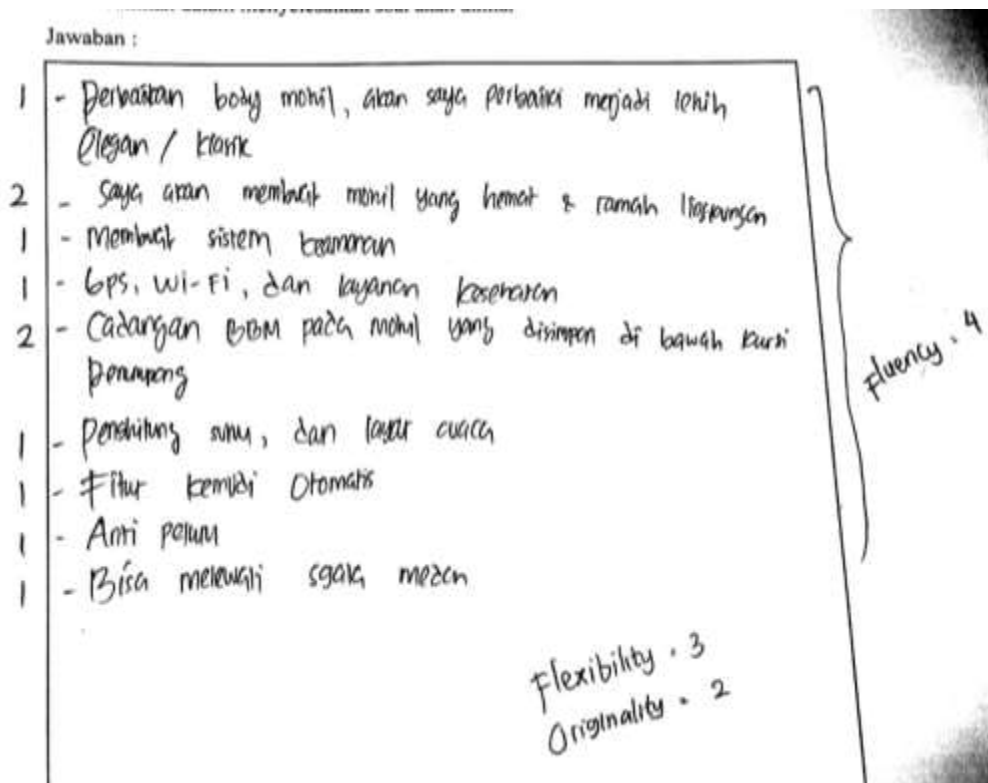 Jawaban :
1 - Perbaikan body mobil, akan saya perbaiki menjadi lebih
elegan / klasik
2 - Saya akan membuat mobil yang hemat & ramah lingkungan
1 - Membuat sistem keamanan
1 - Gps, Wi-Fi, dan layanan kesehatan
2 - Cadangan BBM pada mobil yang disimpan di bawah kursi
Penumpang
1 - Penghitung suhu, dan layar cuaca
1 - Fitur kemudi Otomatis
1 - Anti peluru
1 - Bisa melewati sgala medan
Fluency : 4
Flexibility : 3
Originality : 2